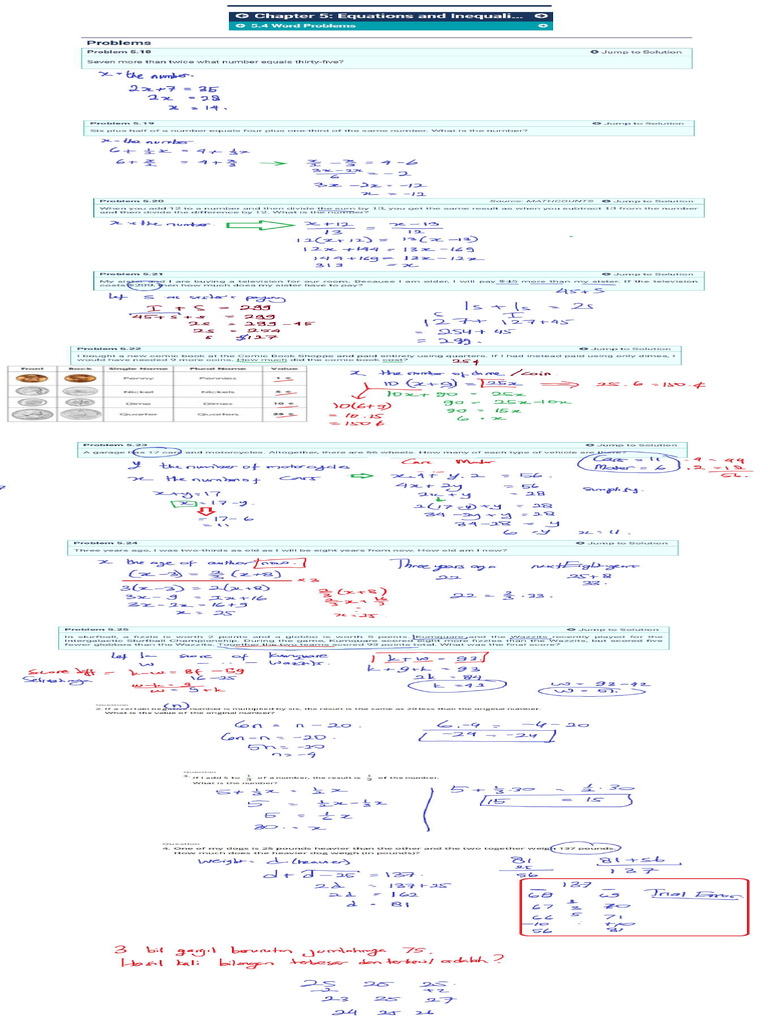 Chapter 5: Equations and Inequali...
5.4 Word Problems
Problems
Problem 5.18 Jump to Solution
Seven more than twice what number equals thirty-five?
x = the number.
2x+7 = 35
2x = 28
x = 14.
Problem 5.19 Jump to Solution
Six plus half of a number equals four plus one-third of the same number. What is the number?
x = the number
6 + 1/2 x = 4 + 1/3 x
6 + x/2 = 4 + x/3 → x/2 - x/3 = 4 - 6
3x-2x/6 = -2
3x - 2x = -12
x = -12
Problem 5.20 Source: MATHCOUNTS Jump to Solution
When you add 12 to a number and then divide the sum by 13, you get the same result as when you subtract 13 from the number
and then divide the difference by 12. What is the number?
x = the number x+12/13 = x-13/12
12(x+12) = 13(x-13)
12x + 144 = 13x - 169
144+169 = 13x - 12x
313 = x
Problem 5.21 Jump to Solution
My sister and I are buying a television for our room. Because I am older, I will pay $45 more than my sister. If the television
costs $299, then how much does my sister have to pay?
45+S
S
I + S = 299
45+S+S = 299
2S = 299-45
2S = 254
S = 127
1S + 1S = 2S
S I
127 + 127+45
= 254+45
= 299.
Problem 5.22 Jump to Solution
I bought a new comic book at the Comic Book Shoppe and paid entirely using quarters. If I had instead paid using only dimes, I
would have needed 9 more coins. How much did the comic book cost?
25¢
Front Back Single Name Plural Name Value
Penny Pennies 1 ¢
Nickel Nickels 5 ¢
Dime Dimes 10 ¢
Quarter Quarters 25 ¢
x the number of dime / coin
10 (x+9) = 25x → 25.6 = 150 ¢
10x + 90 = 25x
90 = 25x-10x
90 = 15x
6 = x
10(6+9)
= 10.15
= 150¢
Problem 5.23 Jump to Solution
A garage has 17 cars and motorcycles. Altogether, there are 56 wheels. How many of each type of vehicle are there?
Cars = 11 .4 = 44
Motor = 6 .2 = 12
56.
y the number of motorcycles
x the number of cars
x+y = 17
x = 17-y
= 17-6
= 11
Cars Motor
x.4 + y.2 = 56.
4x + 2y = 56
2x + y = 28 simplify.
2(17-y)+y = 28
34-2y+y = 28
34-28 = y
6 = y x = 11.
Problem 5.24 Jump to Solution
Three years ago, I was two-thirds as old as I will be eight years from now. How old am I now?
x the age of author now.
(x-3) = 2/3 (x+8) ×3
3(x-3) = 2(x+8)
3x-9 = 2x+16
3x-2x = 16+9
x = 25
2/3 (x+8)
2/3 x + 16/3
x = 25
Three years ago next Eight years
22 25+8
33.
22 = 2/3 . 33.
Problem 5.25 Jump to Solution
In slurfball, a fizzle is worth 2 points and a globbo is worth 5 points. Kumquare and the Wazzits recently played for the
Intergalactic Slurfball Championship. During the game, Kumquare scored eight more fizzles than the Wazzits, but scored five
fewer globbos than the Wazzits. Together the two teams scored 93 points total. What was the final score?
k+w = 93
k+9+k = 93
2k = 84
k = 42
16-25
w = 9+k
w = 93-42
w = 51.
Question
(n)
2. If a certain negative number is multiplied by six, the result is the same as 20 less than the original number.
What is the value of the original number?
6n = n - 20.
6n-n = -20.
5n = -20
n = -4
6.-4 = -4-20
-24 = -24
Question
3. If I add 5 to 1/3 of a number, the result is 1/2 of the number.
What is the number?
5 + 1/3 x = 1/2 x
5 = 1/2 x - 1/3 x
5 = 1/6 x
30 = x
5 + 1/3 . 30 = 1/2 . 30
15 = 15
Question
4. One of my dogs is 25 pounds heavier than the other and the two together weigh 137 pounds.
How much does the heavier dog weigh (in pounds)?
Weight = d (heavier)
d + d-25 = 137.
2d = 137+25
2d = 162
d = 81
81
25
56
81+56
137
137
68 69 Trial Error
67 70
66 71
-10 +10
56 81
3 bil ganjil berurutan jumlahnya 75.
Hasil kali bilangan terbesar dan terkecil adalah?
25 25 25
-2 +2
23 25 27
24 25 26